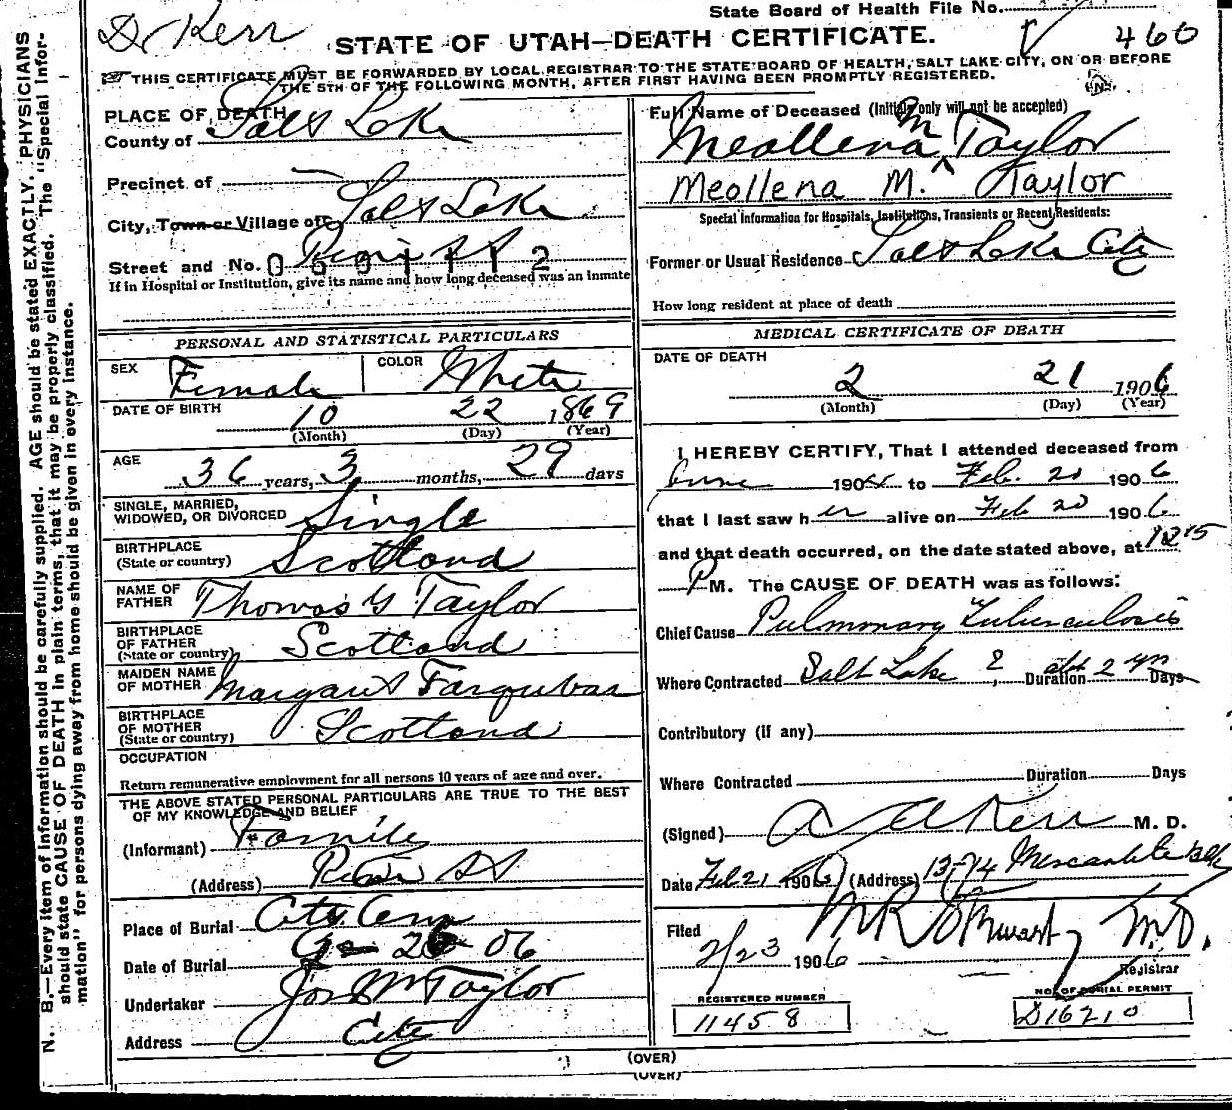 State Board of Health File No.
Dr Kerr
STATE OF UTAH—DEATH CERTIFICATE.
460
THIS CERTIFICATE MUST BE FORWARDED BY LOCAL REGISTRAR TO THE STATE BOARD OF HEALTH, SALT LAKE CITY, ON OR BEFORE
THE 5TH OF THE FOLLOWING MONTH, AFTER FIRST HAVING BEEN PROMPTLY REGISTERED.
N. B.—Every item of information should be carefully supplied. AGE should be stated EXACTLY. PHYSICIANS
should state CAUSE OF DEATH in plain terms, that it may be properly classified. The "Special Infor-
mation" for persons dying away from home should be given in every instance.
PLACE OF DEATH
County of Salt Lake
Precinct of
City, Town or Village of Salt Lake
Street and No.
If in Hospital or Institution, give its name and how long deceased was an inmate
PERSONAL AND STATISTICAL PARTICULARS
SEX Female COLOR White
DATE OF BIRTH 10 22 1869
(Month) (Day) (Year)
AGE 36 years, 3 months, 29 days
SINGLE, MARRIED,
WIDOWED, OR DIVORCED Single
BIRTHPLACE
(State or country) Scotland
NAME OF
FATHER Thomas G Taylor
BIRTHPLACE
OF FATHER
(State or country) Scotland
MAIDEN NAME
OF MOTHER Margaret Farquhar
BIRTHPLACE
OF MOTHER
(State or country) Scotland
OCCUPATION
Return remunerative employment for all persons 10 years of age and over.
THE ABOVE STATED PERSONAL PARTICULARS ARE TRUE TO THE BEST
OF MY KNOWLEDGE AND BELIEF
(Informant) Family
(Address)
Place of Burial City Cem
Date of Burial 26 06
Undertaker Jos Wm Taylor
Address City
Full Name of Deceased (Initials only will not be accepted)
Meollena M Taylor
Meollena M. Taylor
Special Information for Hospitals, Institutions, Transients or Recent Residents:
Former or Usual Residence Salt Lake City
How long resident at place of death
MEDICAL CERTIFICATE OF DEATH
DATE OF DEATH
2 21 1906
(Month) (Day) (Year)
I HEREBY CERTIFY, That I attended deceased from
June 190 to Feb. 20 1906
that I last saw her alive on Feb 20 1906
and that death occurred, on the date stated above, at 12 15
P M. The CAUSE OF DEATH was as follows:
Chief Cause Pulmonary Tuberculosis
Where Contracted Salt Lake ? Duration abt 2 yrs Days
Contributory (if any)
Where Contracted Duration Days
(Signed) Kerr M. D.
Date Feb 21 1906 (Address) 13-14 Mercantile Blk
Filed
2/23 1906 M R Stewart M.D.
Registrar
REGISTERED NUMBER
11458
NO. OF BURIAL PERMIT
D16210
(OVER)
(OVER)